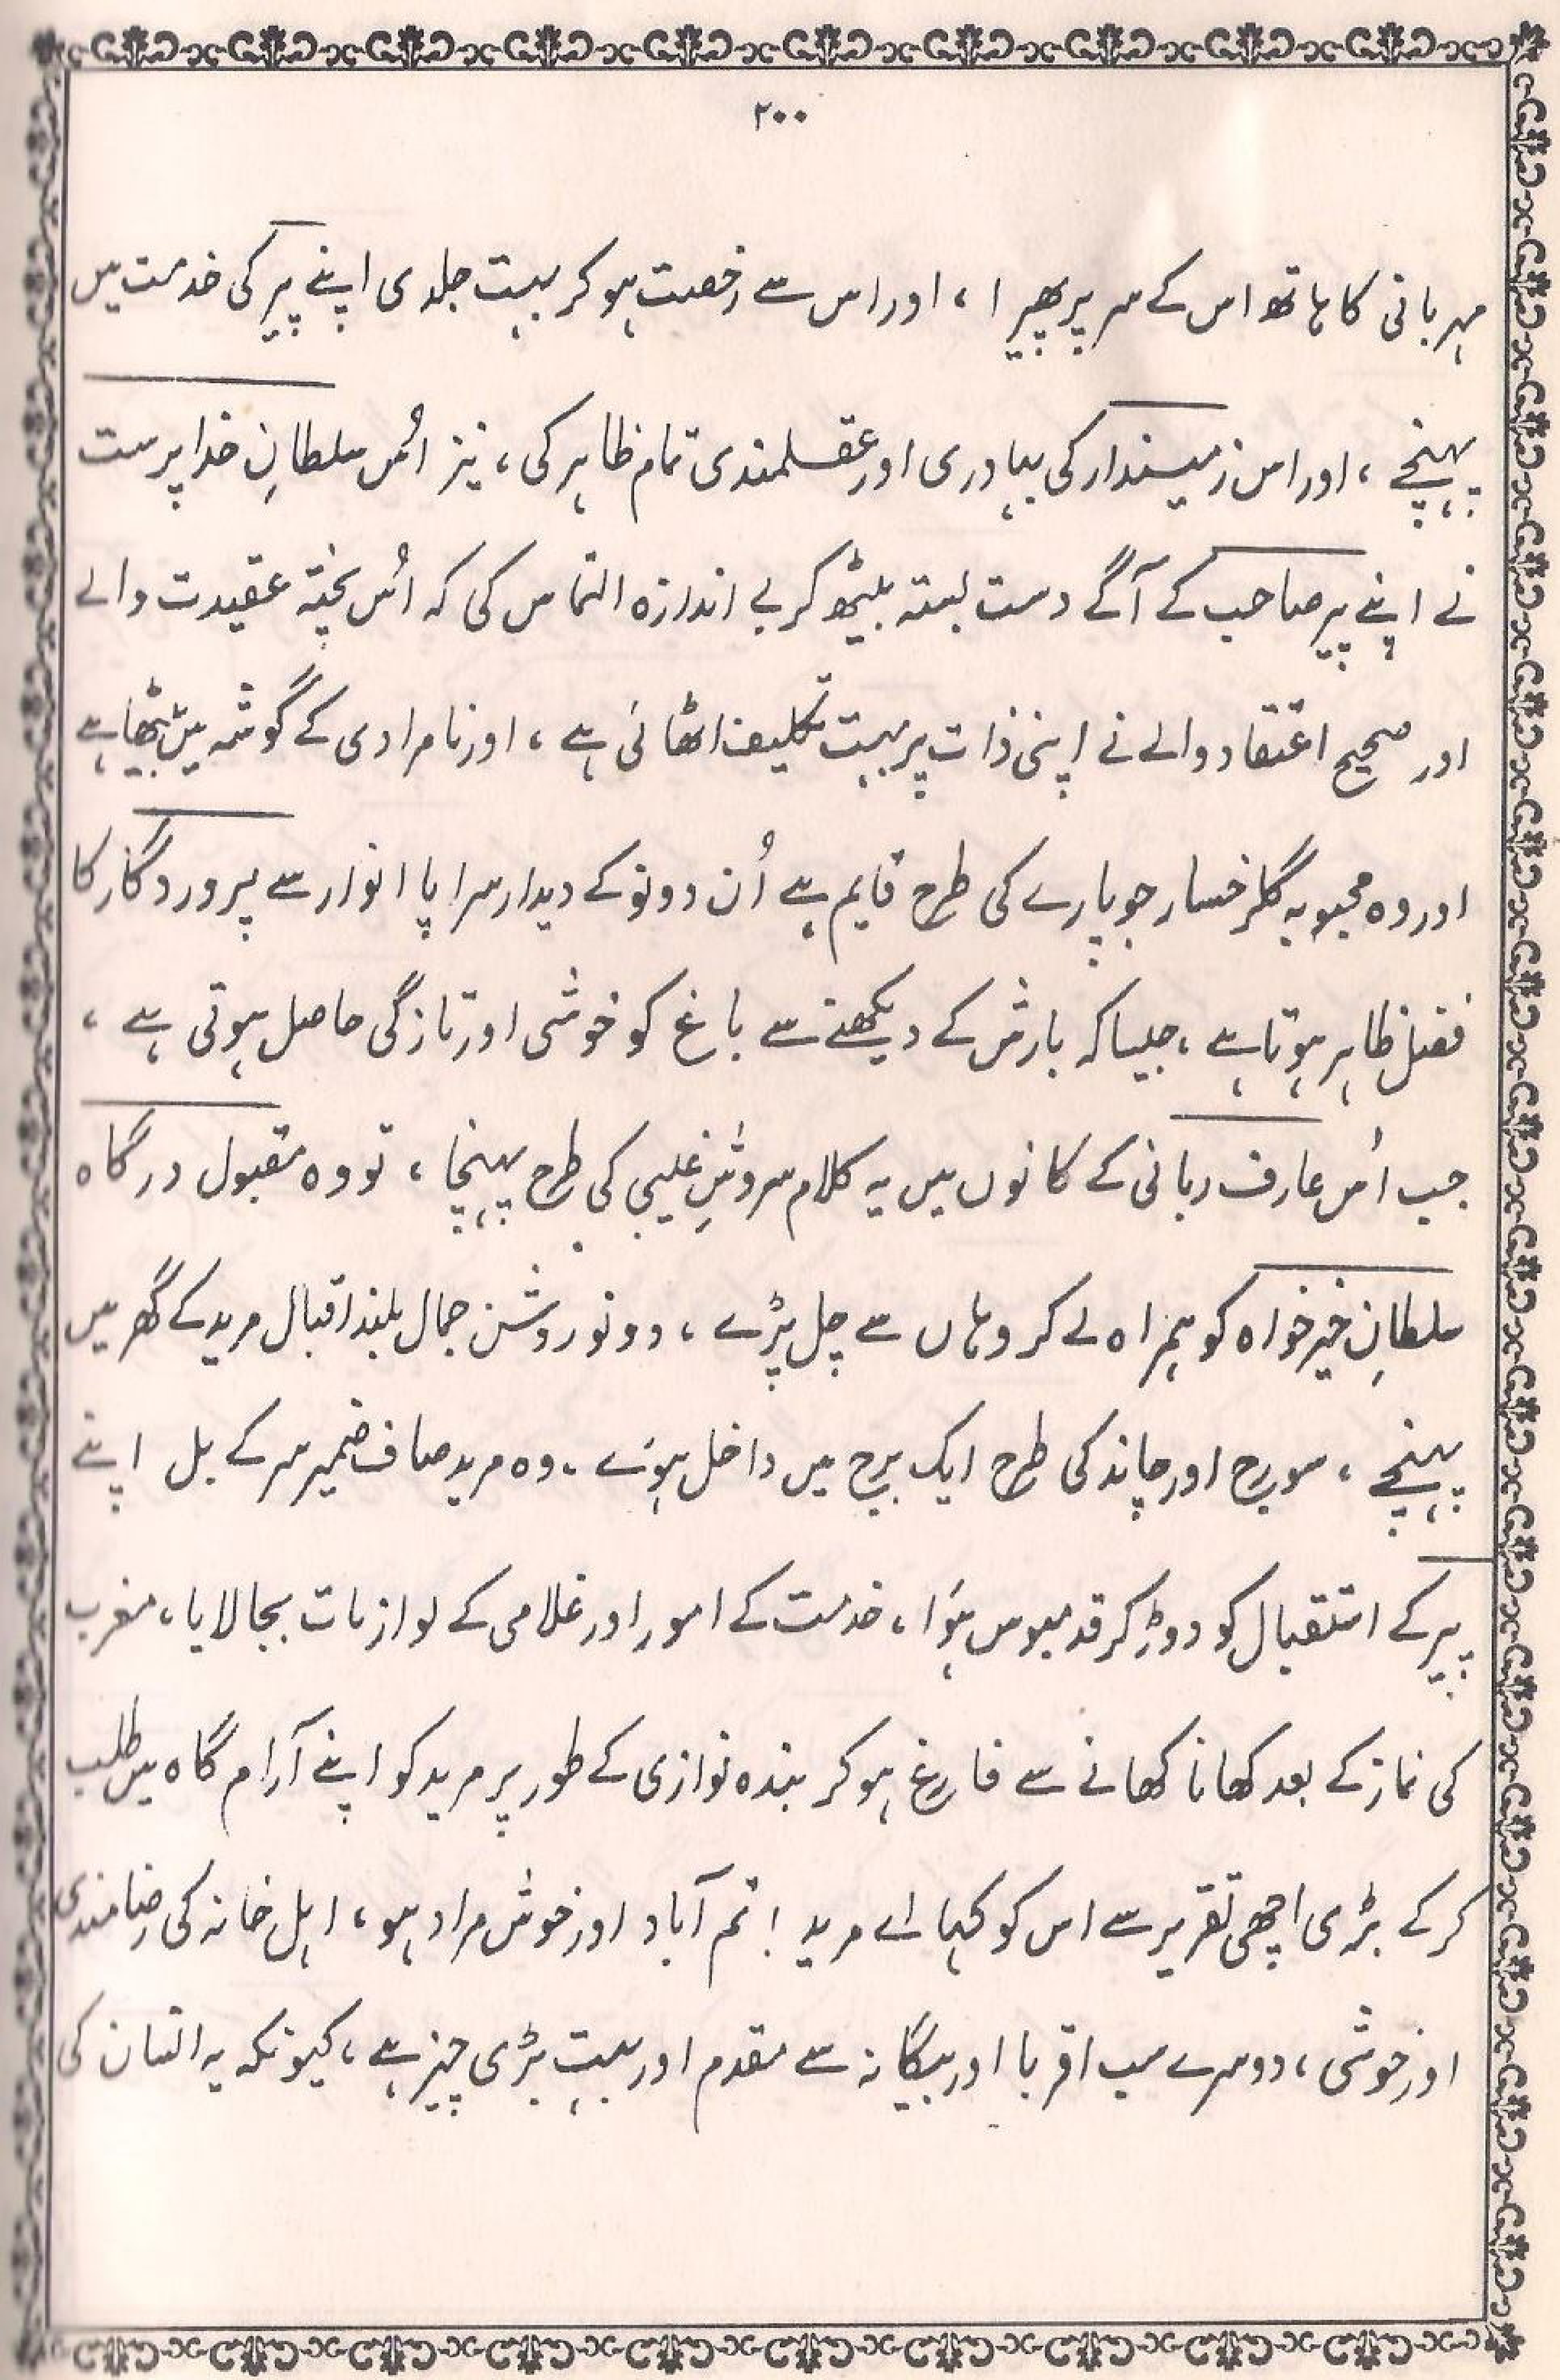 ۲۰۰
مہربانی کا ہاتھ اس کے سر پر پھیرا ، اور اس سے رخصت ہو کر بہت جلدی اپنے پیر کی خدمت میں
پہنچے ، اور اس زمیندار کی بہادری اور عقلمندی تمام ظاہر کی ، نیز اُس سلطانِ خدا پرست
نے اپنے پیر صاحب کے آگے دست بستہ بیٹھ کر بے اندازہ التماس کی کہ اُس پختہ عقیدت والے
اور صحیح اعتقاد والے نے اپنی ذات پر بہت تکلیف اٹھائی ہے ، اور نامرادی کے گوشہ میں بیٹھا ہے
اور وہ محبوبہ گلرخسار جو پارے کی طرح قایم ہے اُن دونو کے دیدار سراپا انوار سے پروردگار کا
فضل ظاہر ہوتا ہے ، جیسا کہ بارش کے دیکھنے سے باغ کو خوشی اور تازگی حاصل ہوتی ہے ،
جب اُس عارف ربانی کے کانوں میں یہ کلام سروشِ غیبی کی طرح پہنچا ، تو وہ مقبول درگاہ
سلطانِ خیر خواہ کو ہمراہ لے کر وہاں سے چل پڑے ، دونو روشن جمال بلند اقبال مرید کے گھر میں
پہنچے ، سورج اور چاند کی طرح ایک برج میں داخل ہوئے ، وہ مرید صاف ضمیر سر کے بل اپنے
پیر کے استقبال کو دوڑ کر قدمبوس ہؤا ، خدمت کے امور اور غلامی کے لوازمات بجا لایا ، مغرب
کی نماز کے بعد کھانا کھانے سے فارغ ہو کر بندہ نوازی کے طور پر مرید کو اپنے آرام گاہ میں طلب
کر کے بڑی اچھی تقریر سے اس کو کہا اے مرید ! تم آباد اور خوش مراد ہو ، اہل خانہ کی رضامندی
اور خوشی ، دوسرے سب اقربا اور بیگانہ سے مقدم اور بہت بڑی چیز ہے ، کیونکہ یہ انسان کی